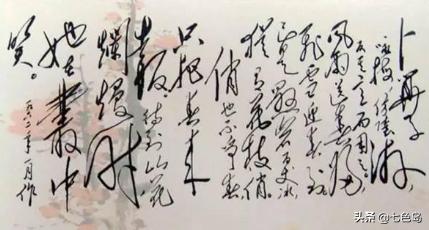 卜算子
咏梅 仿陆游
反其意而用之
風雨送春归
飛雪迎春到
已是悬岩百丈冰
犹有花枝俏
俏也不争春
只把春来
报 待到山花
爛熳时
她在叢中
笑。
一九六二年一月作
头条 @七色岛